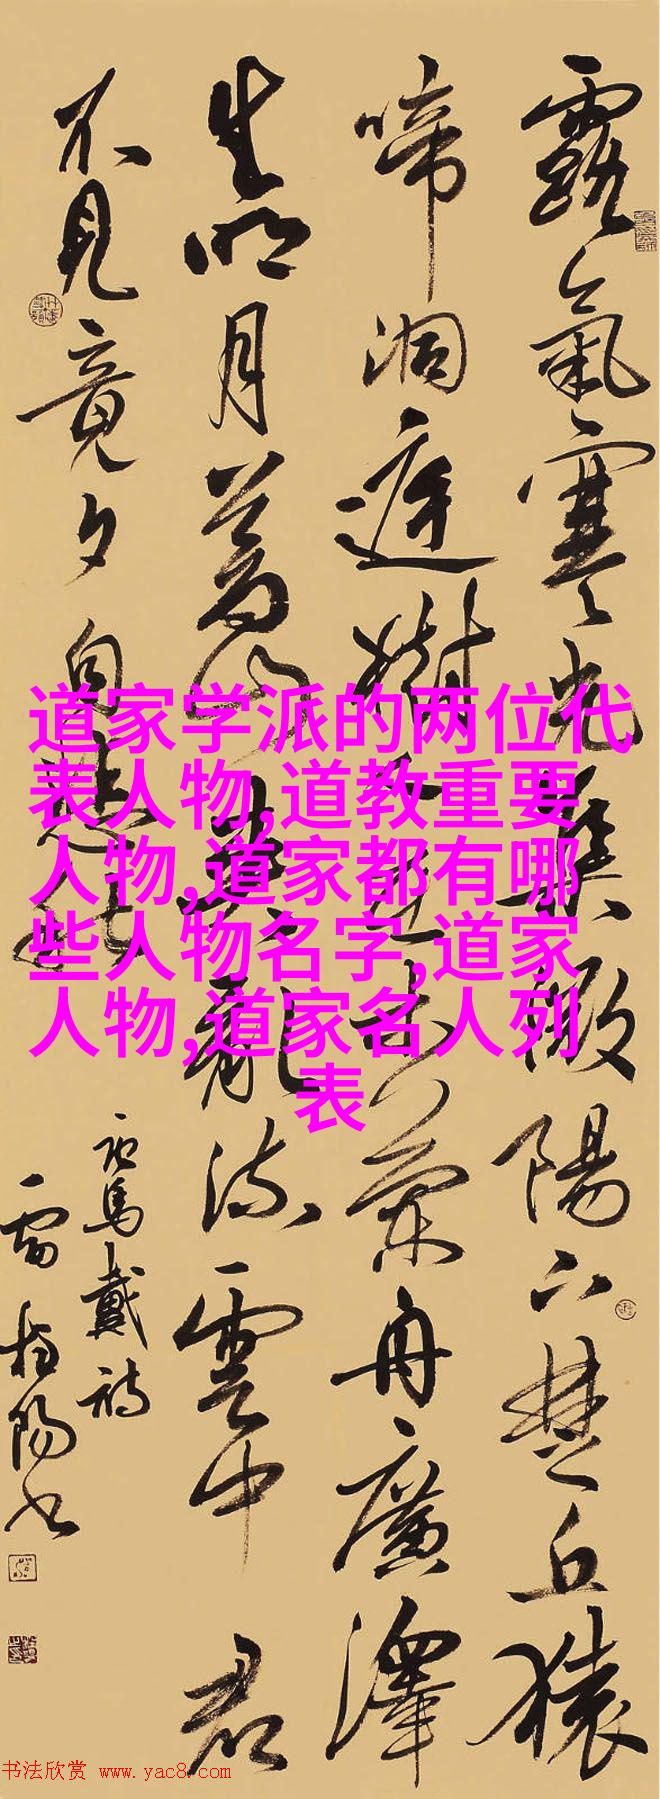 露氣寒光集微陽下楚丘猿
啼洞庭樹人在木蘭舟廣澤
生明月蒼山夾亂流雲中君
不見竟夕自悲秋
馬戴詩
雷陽书
道家学派的两位代
表人物,道教重要
人物,道家都有哪
些人物名字,道家
人物,道家名人列
表
书法欣赏 www.yac8.com